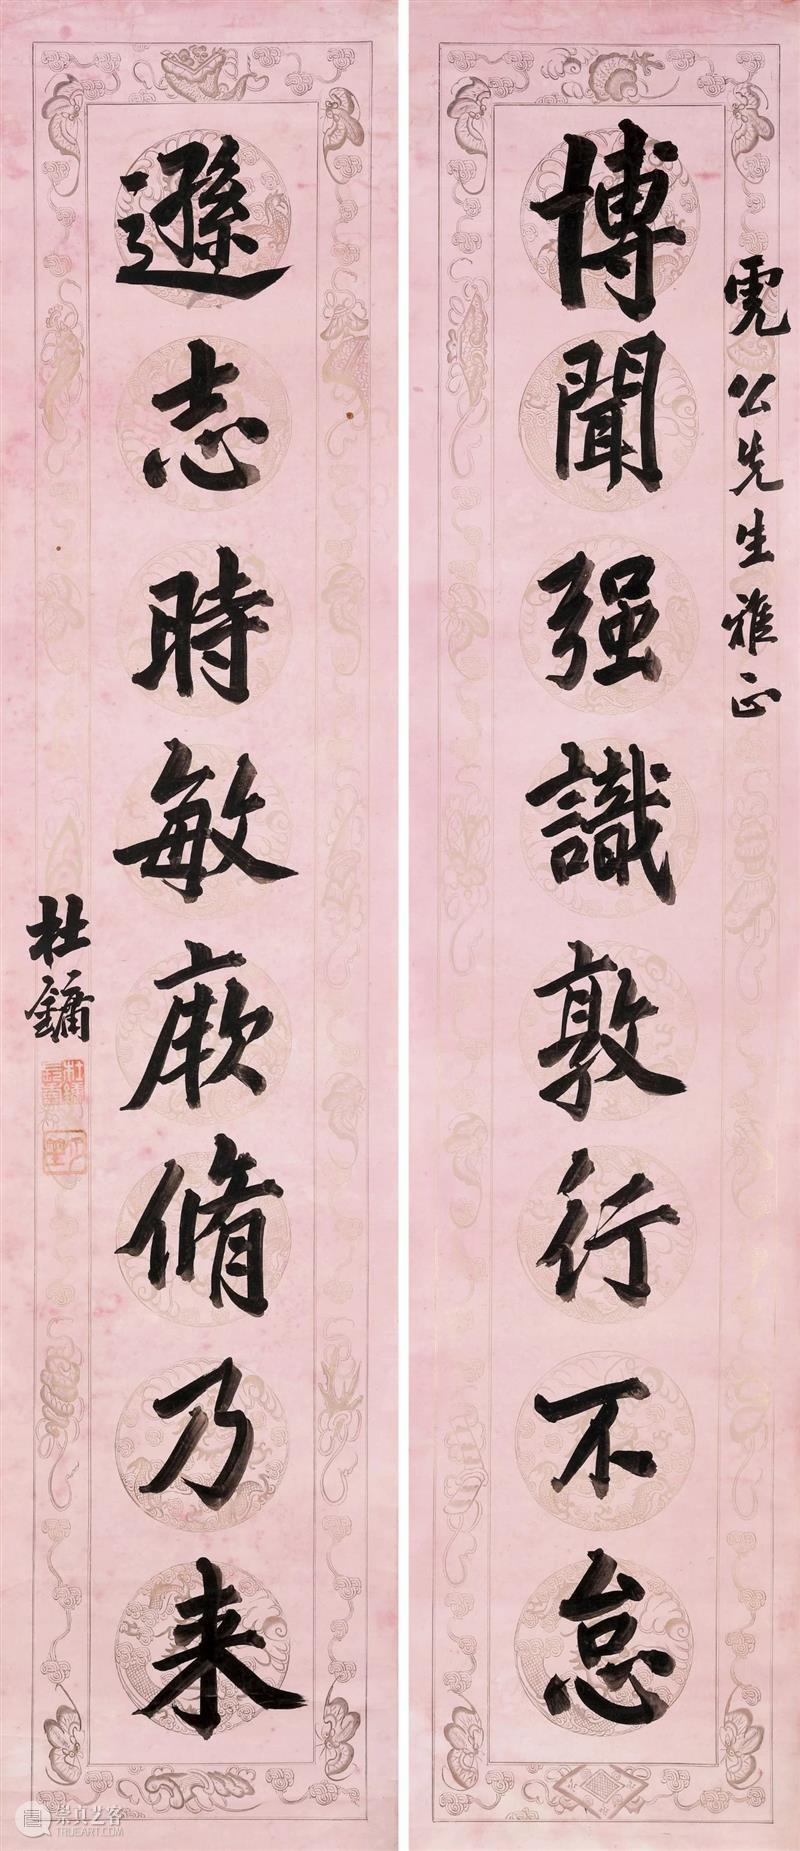 公先生雅正
博聞强識敦行不怠
遜志時敏厥脩乃来
杜鏞
月笙
崇真艺客
TRUEART.COM